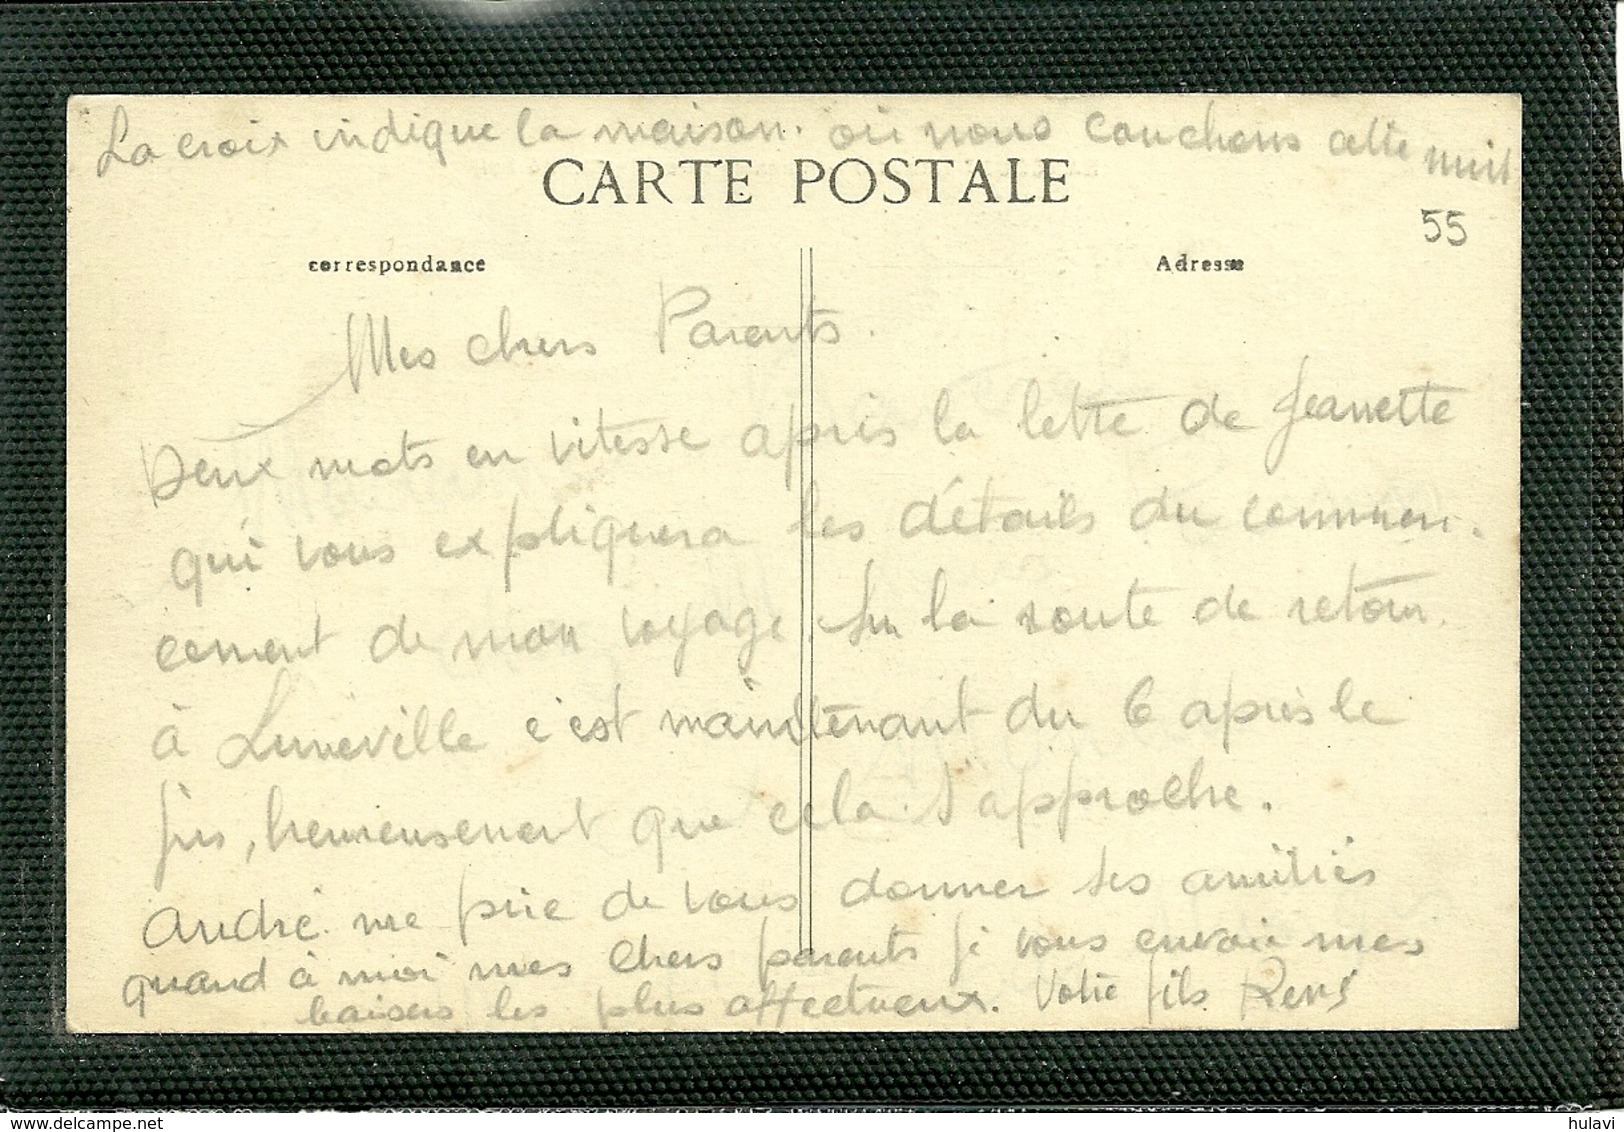 La croix indique la maison. où nous couchons cette nuit
CARTE POSTALE
55
correspondance
Adresse
Mes chers Parents.
Deux mots en vitesse après la lettre de Jeanette
qui vous expliquera les détails du commen.
cement de mon voyage. Sur la route de retour.
à Luneville c'est maintenant du 6 après le
jus, heureusement que cela s'approche.
André me prie de vous donner ses amitiés
quand à moi mes chers parents je vous envoie mes
baisers les plus affectueux. Votre fils René
delcampe.net
hulavi